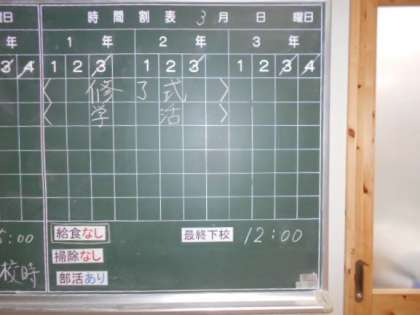 曜日 時間割表 3月 日 曜日
年 1年 2年 3年
3 4 1 2 3 1 2 3 1 2 3 4
〈 修了式 〉
〈 学活 〉
給食なし 最終下校 12:00
:00
掃除なし
校時 部活あり